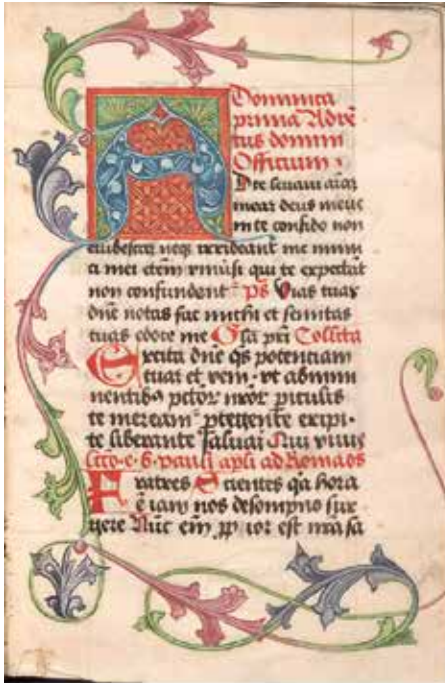 Dominica
prima Adve᷒
tus domini
Officium
A
D te levavi aiaz
meaz deus meus
in te confido non
erubescaz neqз irrideant me inimi
ci mei etem vniu᷒si qui te expectāt
non confundent Ps Vias tuas
dn̄e notas fac michi et semitas
tuas edoce me Gla pri Collcta
Excita dn̄e qs potenciam
tuaz et veni vt ab immi
nentibꝫ pctorz nrorz piculis
te meream᷒ ptegente eripi
te liberante saluari Qui viuis
lcco e b pauli apli ad Romaos
Fratres Scientes qa hora
ē iam nos de sompno sur
gere Nūc em ꝓpior est nra sa